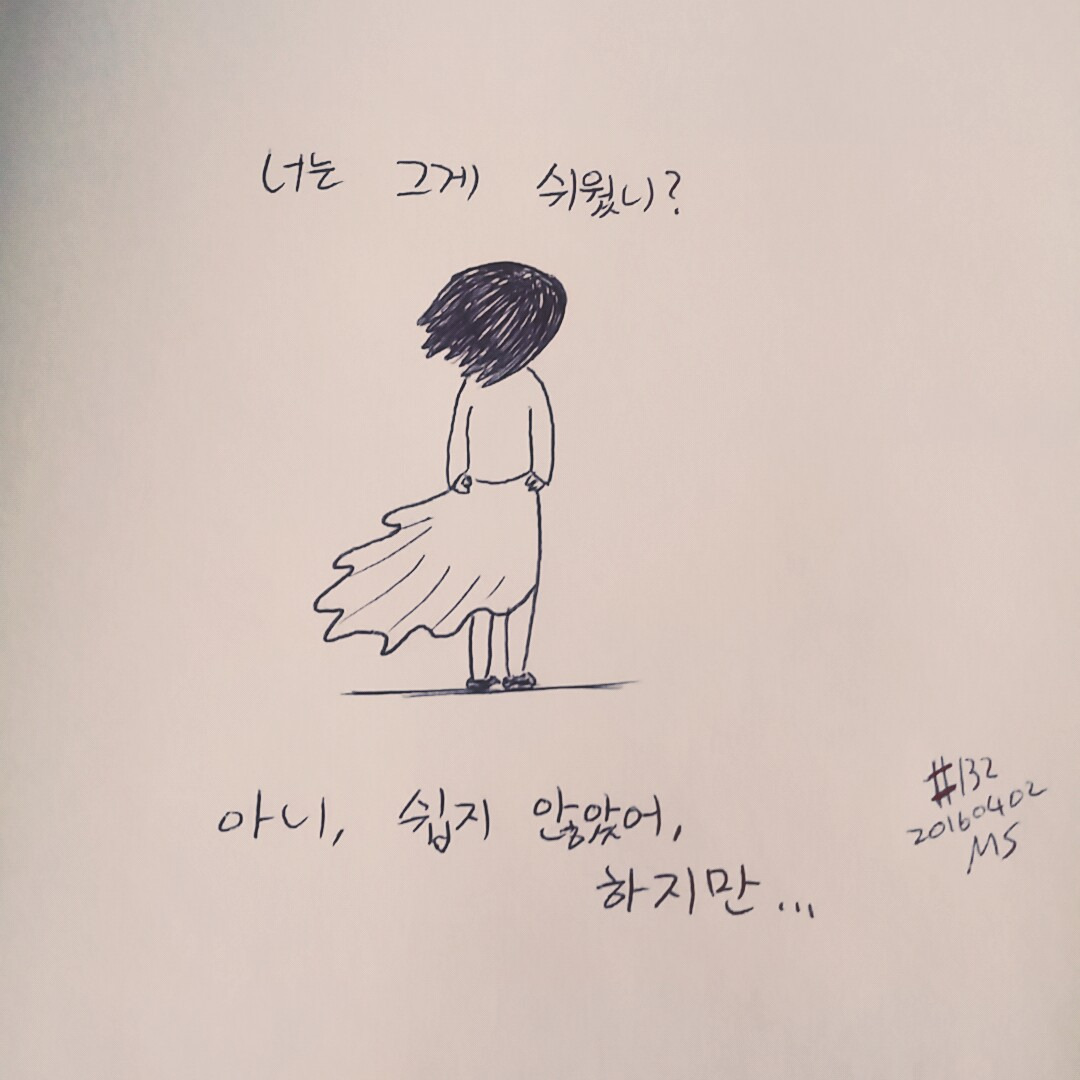 너는 그게 쉬웠니?
아니, 쉽지 않았어,
하지만...
#132
20160402
MS